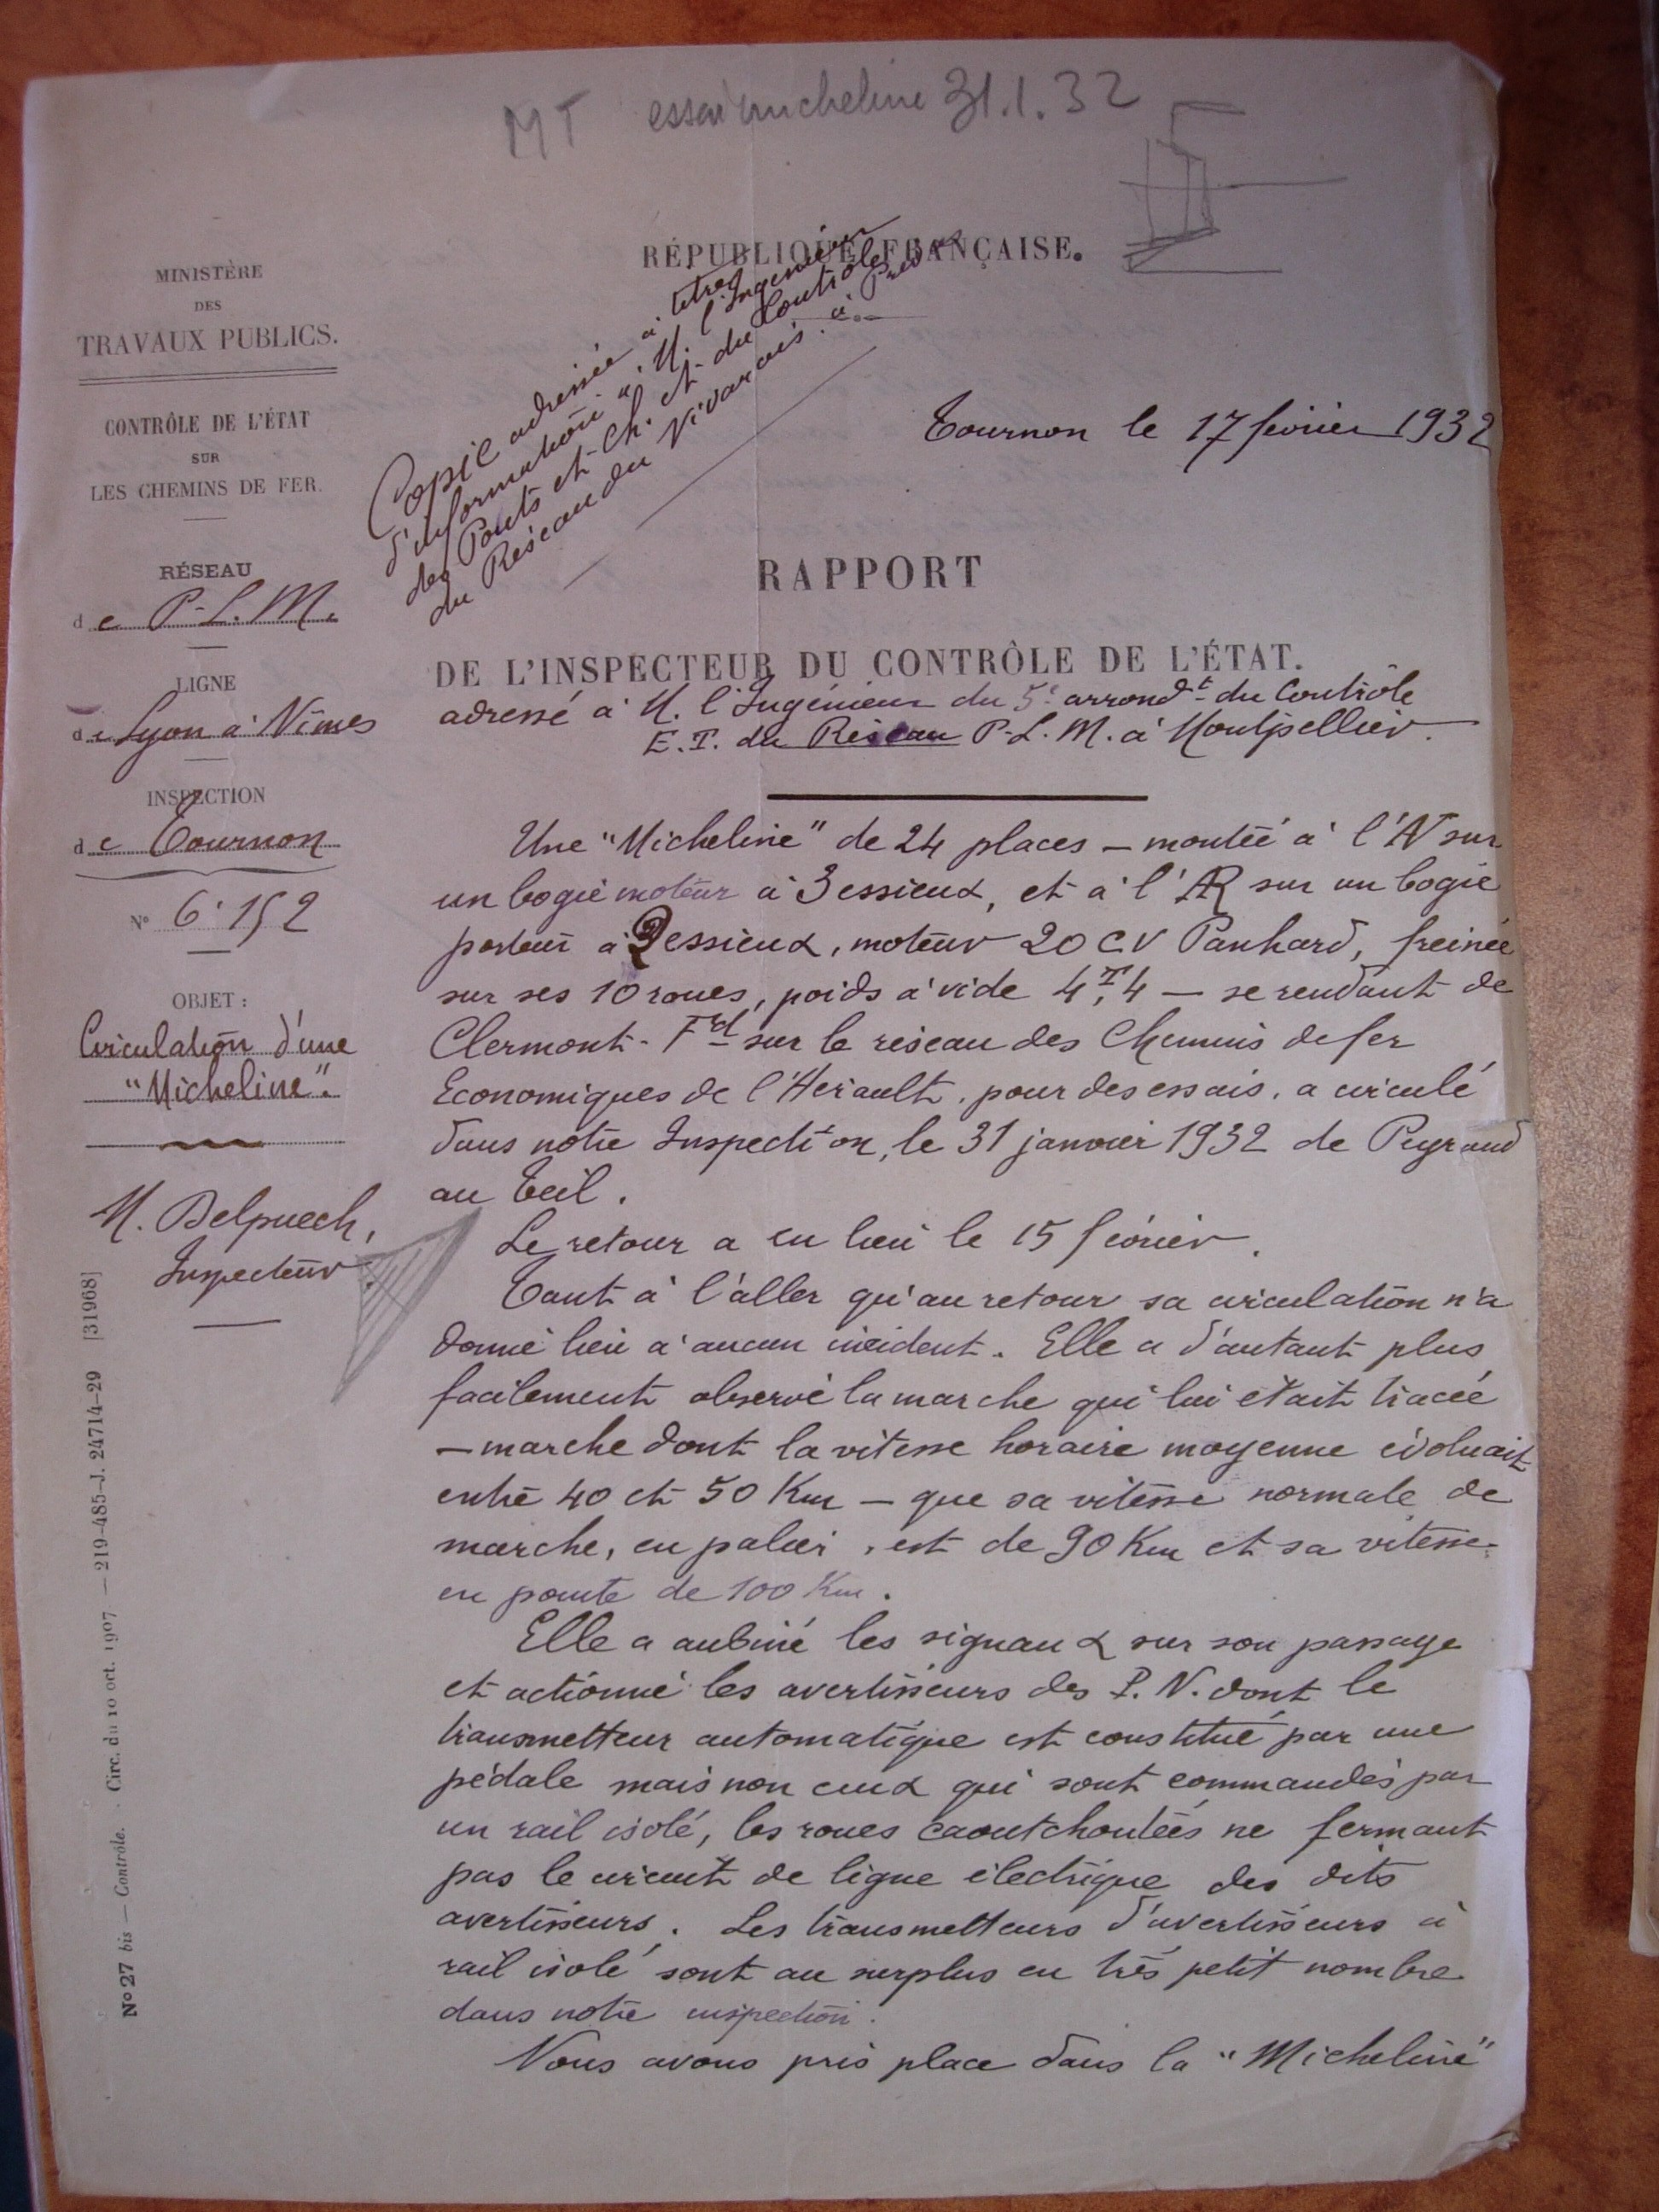 MT essai micheline 31.1.32
RÉPUBLIQUE FRANÇAISE.
MINISTÈRE
DES
TRAVAUX PUBLICS.
CONTRÔLE DE L'ÉTAT
SUR
LES CHEMINS DE FER.
RÉSEAU
de P-L.M.
LIGNE
de Lyon à Nîmes
INSPECTION
de Tournon
N° 6.152
OBJET :
Circulation d'une
"Micheline".
M. Delpuech,
Inspecteur.
N° 27 bis — Contrôle. . Circ. du 10 oct. 1907 — 219-485-J. 24714-29 [31968]
Copie adressée à titre
d'information à M. l'Ingénieur
des Ponts et Ch. et du Contrôle
du Réseau du Vivarais à
Tournon le 17 février 1932
RAPPORT
DE L'INSPECTEUR DU CONTRÔLE DE L'ÉTAT.
adressé à M. l'Ingénieur du 5e arrondt du Contrôle
E.T. du Réseau P-L.M. à Montpellier.
Une "Micheline" de 24 places — montée à l'AV sur
un bogie moteur à 3 essieux, et à l'AR sur un bogie
porteur à 2 essieux, moteur 20 CV Panhard, freinée
sur ses 10 roues, poids à vide 4T,4 — se rendant de
Clermont-Fd sur le réseau des Chemins de fer
Economiques de l'Hérault, pour des essais, a circulé
dans notre Inspection, le 31 janvier 1932 de Peyraud
au Teil.
Le retour a eu lieu le 15 février.
Tant à l'aller qu'au retour sa circulation n'a
donné lieu à aucun incident. Elle a d'autant plus
facilement observé la marche qui lui était tracée
— marche dont la vitesse horaire moyenne évoluait
entre 40 et 50 Km — que sa vitesse normale de
marche, en palier, est de 90 Km et sa vitesse
en pointe de 100 Km.
Elle a aubiné les signaux sur son passage
et actionné les avertisseurs des P.N. dont le
transmetteur automatique est constitué par une
pédale mais non ceux qui sont commandés par
un rail isolé, les roues caoutchoutées ne fermant
pas le circuit de ligne électrique des dits
avertisseurs. Les transmetteurs d'avertisseurs à
rail isolé sont au surplus en très petit nombre
dans notre inspection.
Nous avons pris place dans la "Micheline"